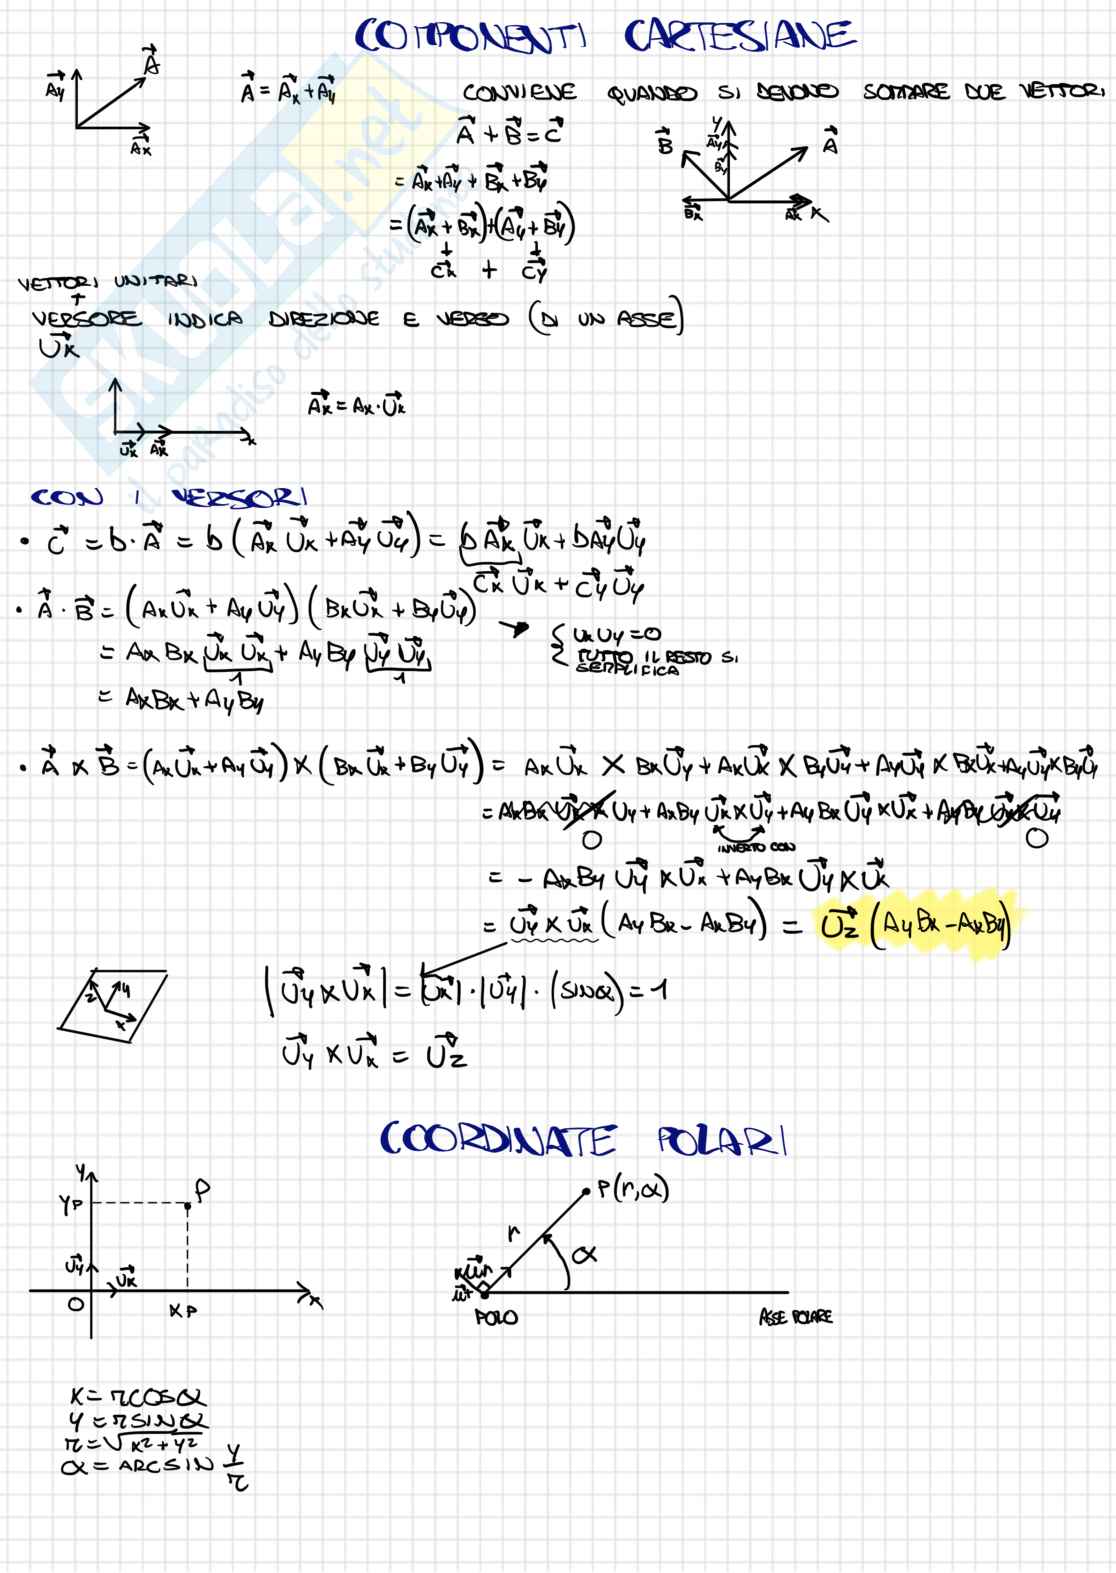 COMPONENTI CARTESIANE
A⃗y A⃗ A⃗x
A⃗ = A⃗x + A⃗y
CONVIENE QUANDO SI DEVONO SOMMARE DUE VETTORI
A⃗ + B⃗ = C⃗
= A⃗x + A⃗y + B⃗x + B⃗y
= (A⃗x + B⃗x) + (A⃗y + B⃗y)
C⃗x + C⃗y
Y B⃗ A⃗y A⃗ B⃗y B⃗x A⃗x X
VETTORI UNITARI
VERSORE INDICA DIREZIONE E VERSO (DI UN ASSE)
U⃗x
U⃗x A⃗x x
A⃗x = Ax · U⃗x
CON I VERSORI
• C⃗ = b · A⃗ = b (A⃗x U⃗x + A⃗y U⃗y) = b A⃗x U⃗x + b A⃗y U⃗y
C⃗x U⃗x + C⃗y U⃗y
• A⃗ · B⃗ = (Ax U⃗x + Ay U⃗y) (Bx U⃗x + By U⃗y)
UxUy = 0
TUTTO IL RESTO SI
SEMPLIFICA
= Ax Bx U⃗x U⃗x + Ay By U⃗y U⃗y
1 1
= AxBx + AyBy
• A⃗ × B⃗ = (Ax U⃗x + Ay U⃗y) × (Bx U⃗x + By U⃗y) = Ax U⃗x × Bx U⃗y + Ax U⃗x × By U⃗y + Ay U⃗y × Bx U⃗x + Ay U⃗y × By U⃗y
= AxBx U⃗x × Uy + AxBy U⃗x × U⃗y + AyBx U⃗y × U⃗x + AyBy U⃗y × U⃗y
0 INVERTO CON 0
= - AxBy U⃗y × U⃗x + AyBx U⃗y × U⃗x
= U⃗y × U⃗x (AyBx - AxBy) = U⃗z (AyBx - AxBy)
z y x
|U⃗y × U⃗x| = |U⃗x| · |U⃗y| · (sinα) = 1
U⃗y × U⃗x = U⃗z
COORDINATE POLARI
Y YP P U⃗y U⃗x O XP X
P(r,α)
r α
u⃗r
POLO ASSE POLARE
X = r COS α
Y = r SIN α
r = √x² + y²
α = ARCSIN y/r
SKUOLA.net
il paradiso dello studente